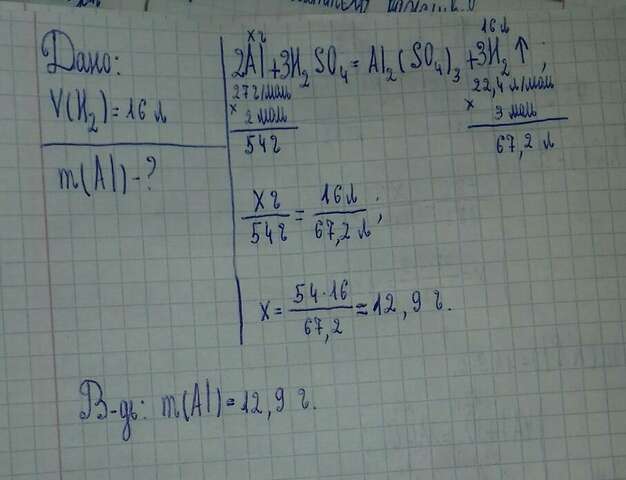 Дано:
V(H₂)=16 л
m(Al)-?
x г
16 л
2Al+3H₂SO₄=Al₂(SO₄)₃+3H₂↑;
27 г/моль
22,4 л/моль
× 2 моль
× 3 моль
54 г
67,2 л
x г / 54 г = 16 л / 67,2 л;
x = 54·16 / 67,2 = 12,9 г.
В-дь: m(Al)=12,9 г.